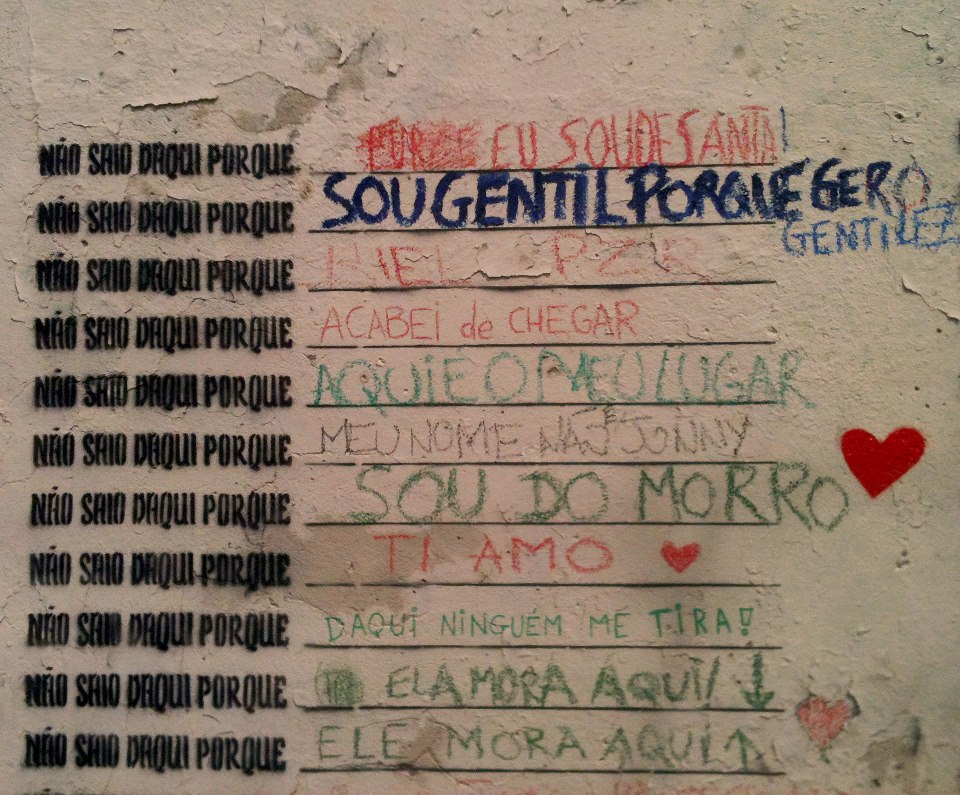 NÃO SAIO DAQUI PORQUE EU SOU DE SANTA!
NÃO SAIO DAQUI PORQUE SOU GENTIL PORQUE GERO
GENTILEZ
NÃO SAIO DAQUI PORQUE
NÃO SAIO DAQUI PORQUE ACABEI de CHEGAR
NÃO SAIO DAQUI PORQUE AQUI E O MEU LUGAR
NÃO SAIO DAQUI PORQUE MEU NOME JONNY
NÃO SAIO DAQUI PORQUE SOU DO MORRO
NÃO SAIO DAQUI PORQUE TI AMO
NÃO SAIO DAQUI PORQUE DAQUI NINGUÉM ME TIRA!
NÃO SAIO DAQUI PORQUE ELA MORA AQUI! ↓
NÃO SAIO DAQUI PORQUE ELE MORA AQUI ↑